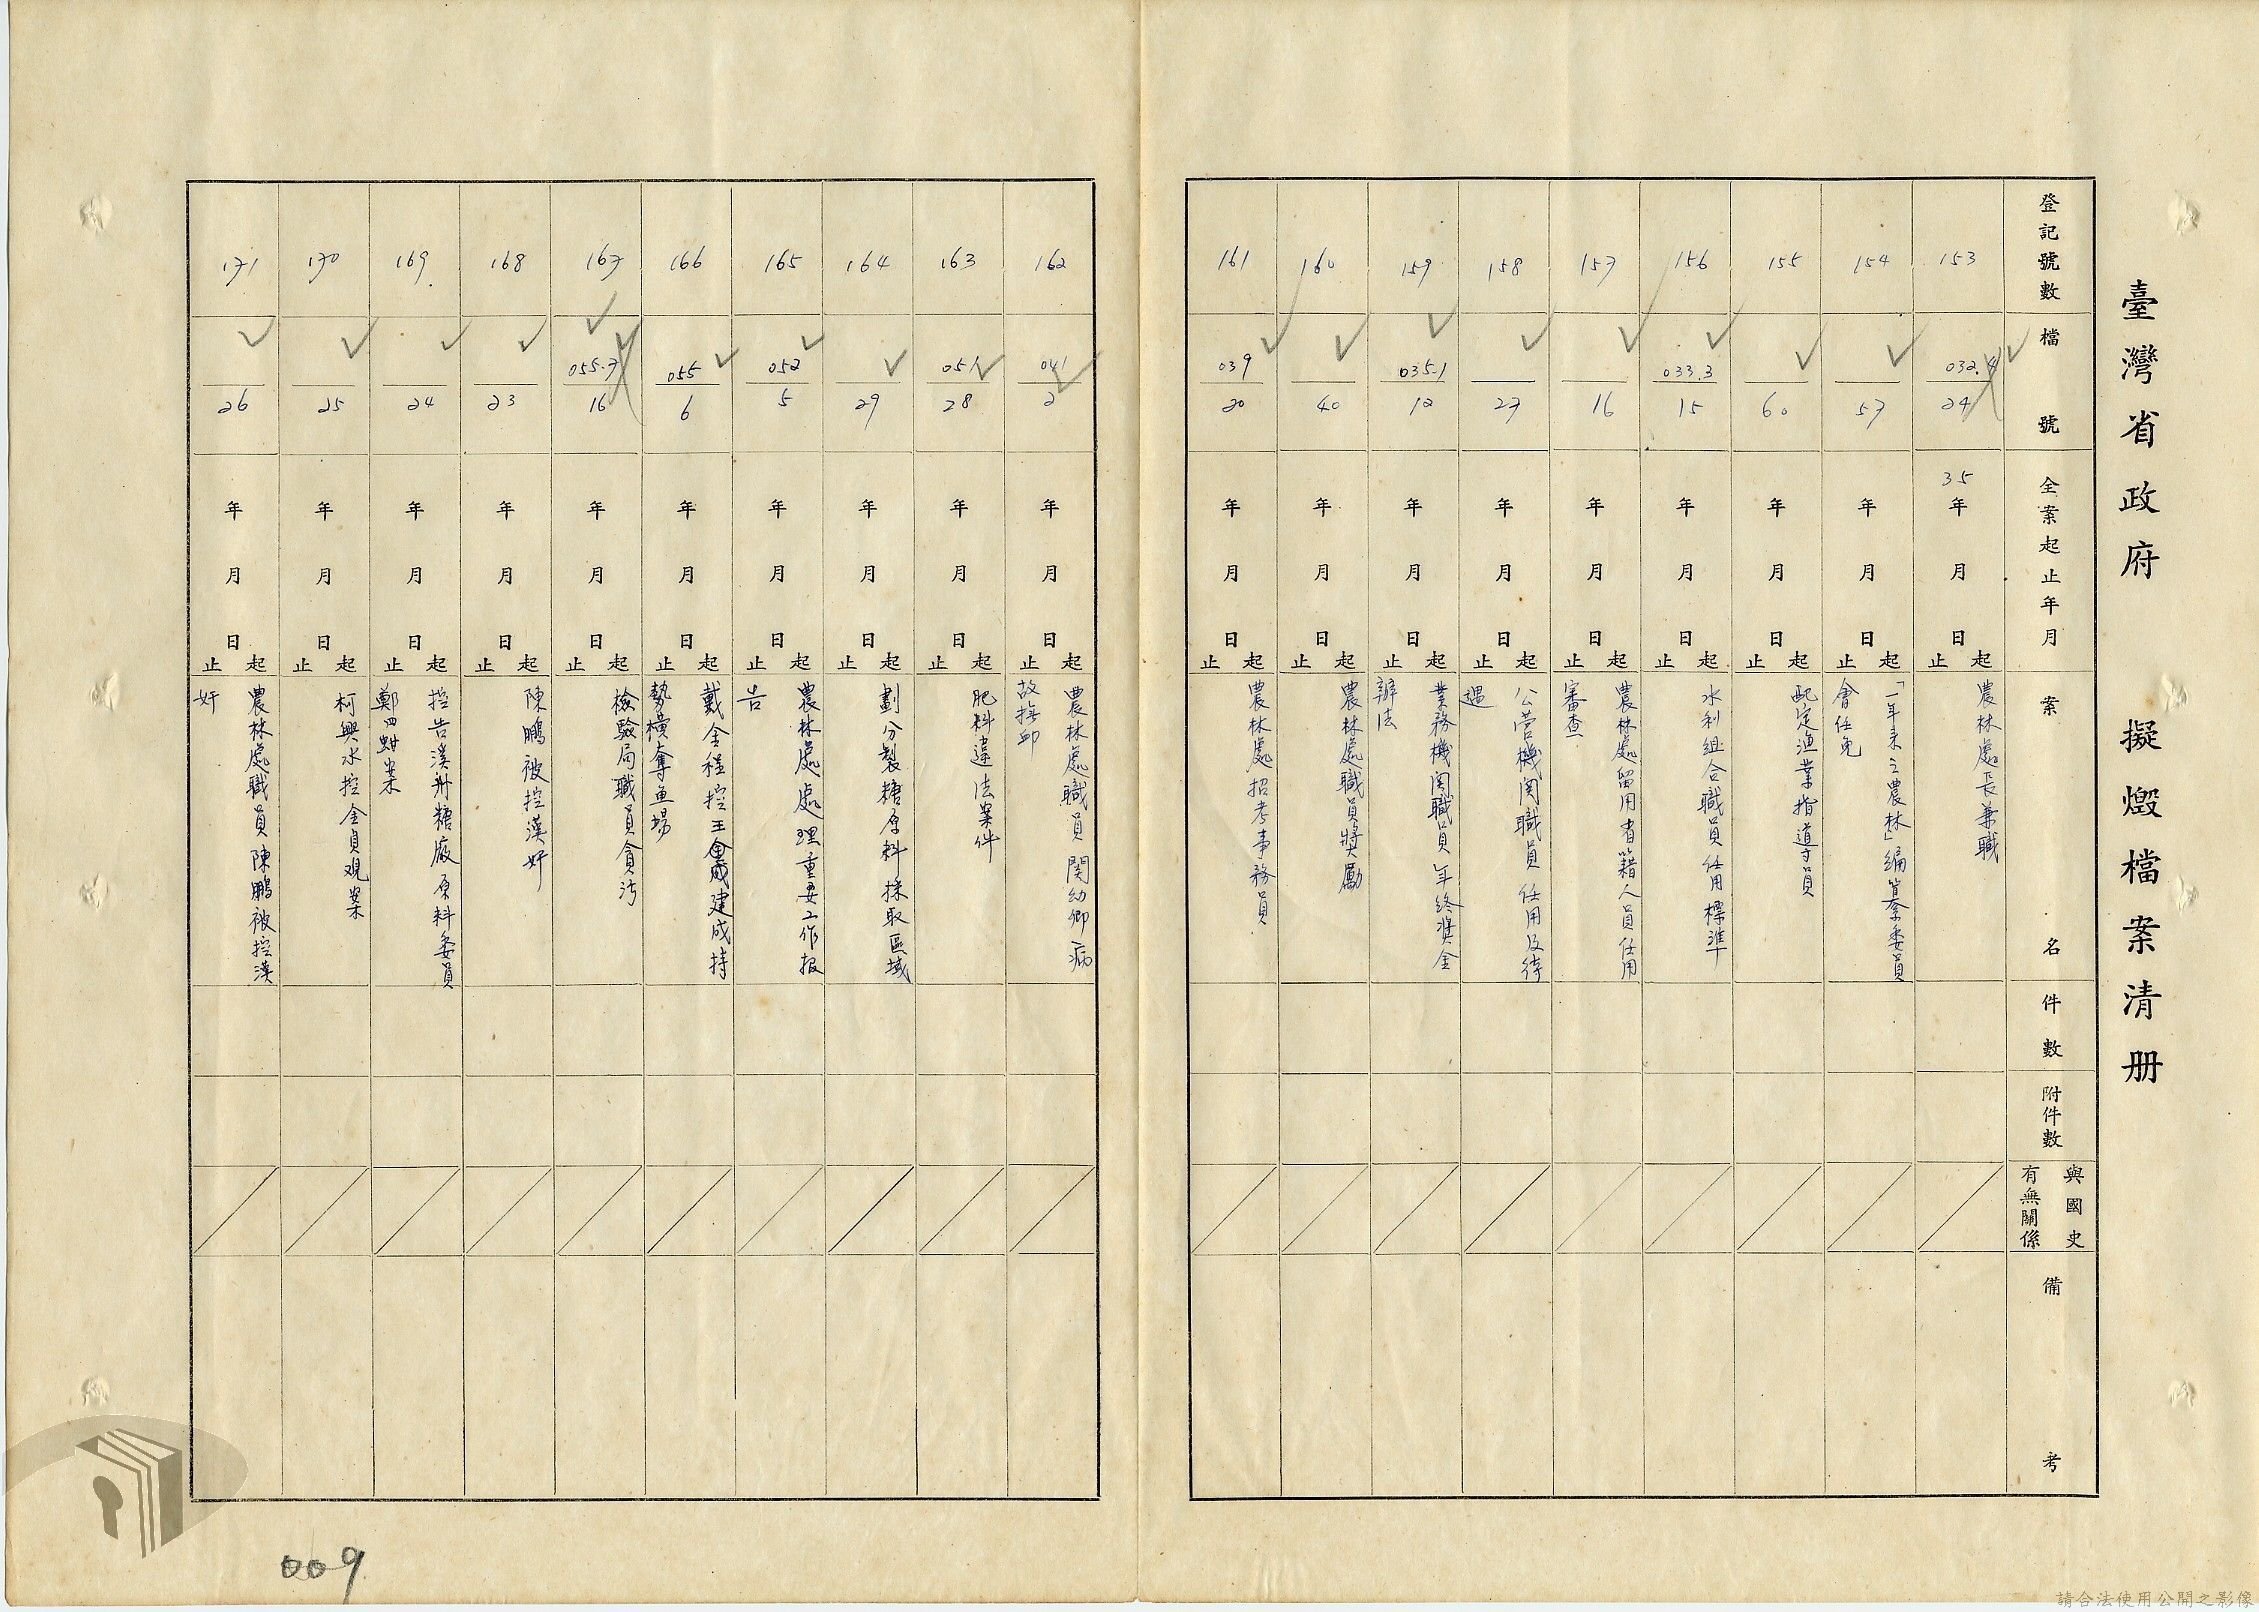 臺灣省政府 擬燬檔案清册
登記號數 檔號 全案起止年月 案名 件數 附件數 與國史有無關係 備考
153 032.4/24 35年 月 日起止 農林處長兼職
154 57 年 月 日起止 「一年來之農林」編纂委員會任免
155 60 年 月 日起止 配定漁業指導員
156 033.3/15 年 月 日起止 水利組合職員任用標準
157 16 年 月 日起止 農林處留用省籍人員任用審查
158 27 年 月 日起止 公营機関職員任用及待遇
159 035.1/12 年 月 日起止 業務機関職員年終奖金辦法
160 40 年 月 日起止 農林處職員獎勵
161 039/20 年 月 日起止 農林處招考事務員
162 041/2 年 月 日起止 農林處職員関幼卿病故撫卹
163 051/28 年 月 日起止 肥料違法案件
164 29 年 月 日起止 劃分製糖原料採取區域
165 052/5 年 月 日起止 農林處處理重要工作报告
166 055/6 年 月 日起止 戴金 控王 建成持勢橫奪鱼場
167 055.7/16 年 月 日起止 檢驗局職員貪污
168 23 年 月 日起止 陳鵬被控漢奸
169 24 年 月 日起止 控告溪州糖廠原料委員鄭四蚶案
170 25 年 月 日起止 柯興水控金貞观案
171 26 年 月 日起止 農林處職員陳鵬被控漢奸
009
請合法使用公開之影像